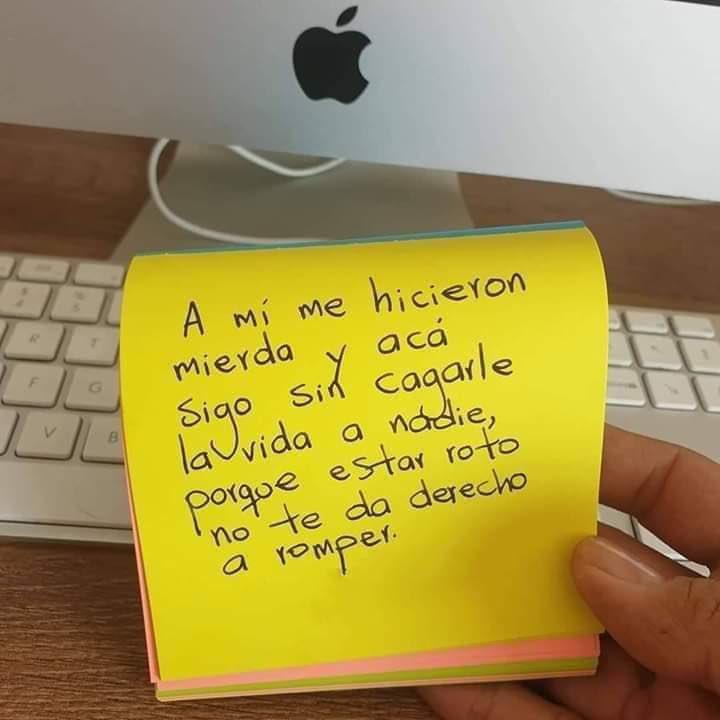 A mí me hicieron
mierda y acá
sigo sin cagarle
la vida a nadie,
porque estar roto
no te da derecho
a romper.
4
5
R
T
F
G
V
B